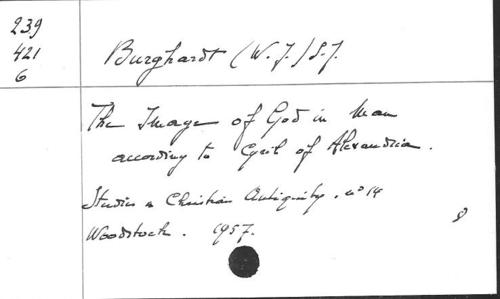 239
421
6
Burghardt (W. J.) S.J.
The Image of God in Man
according to Cyril of Alexandria.
Studies in Christian Antiquity. nº 14
Woodstock. 1957.
8